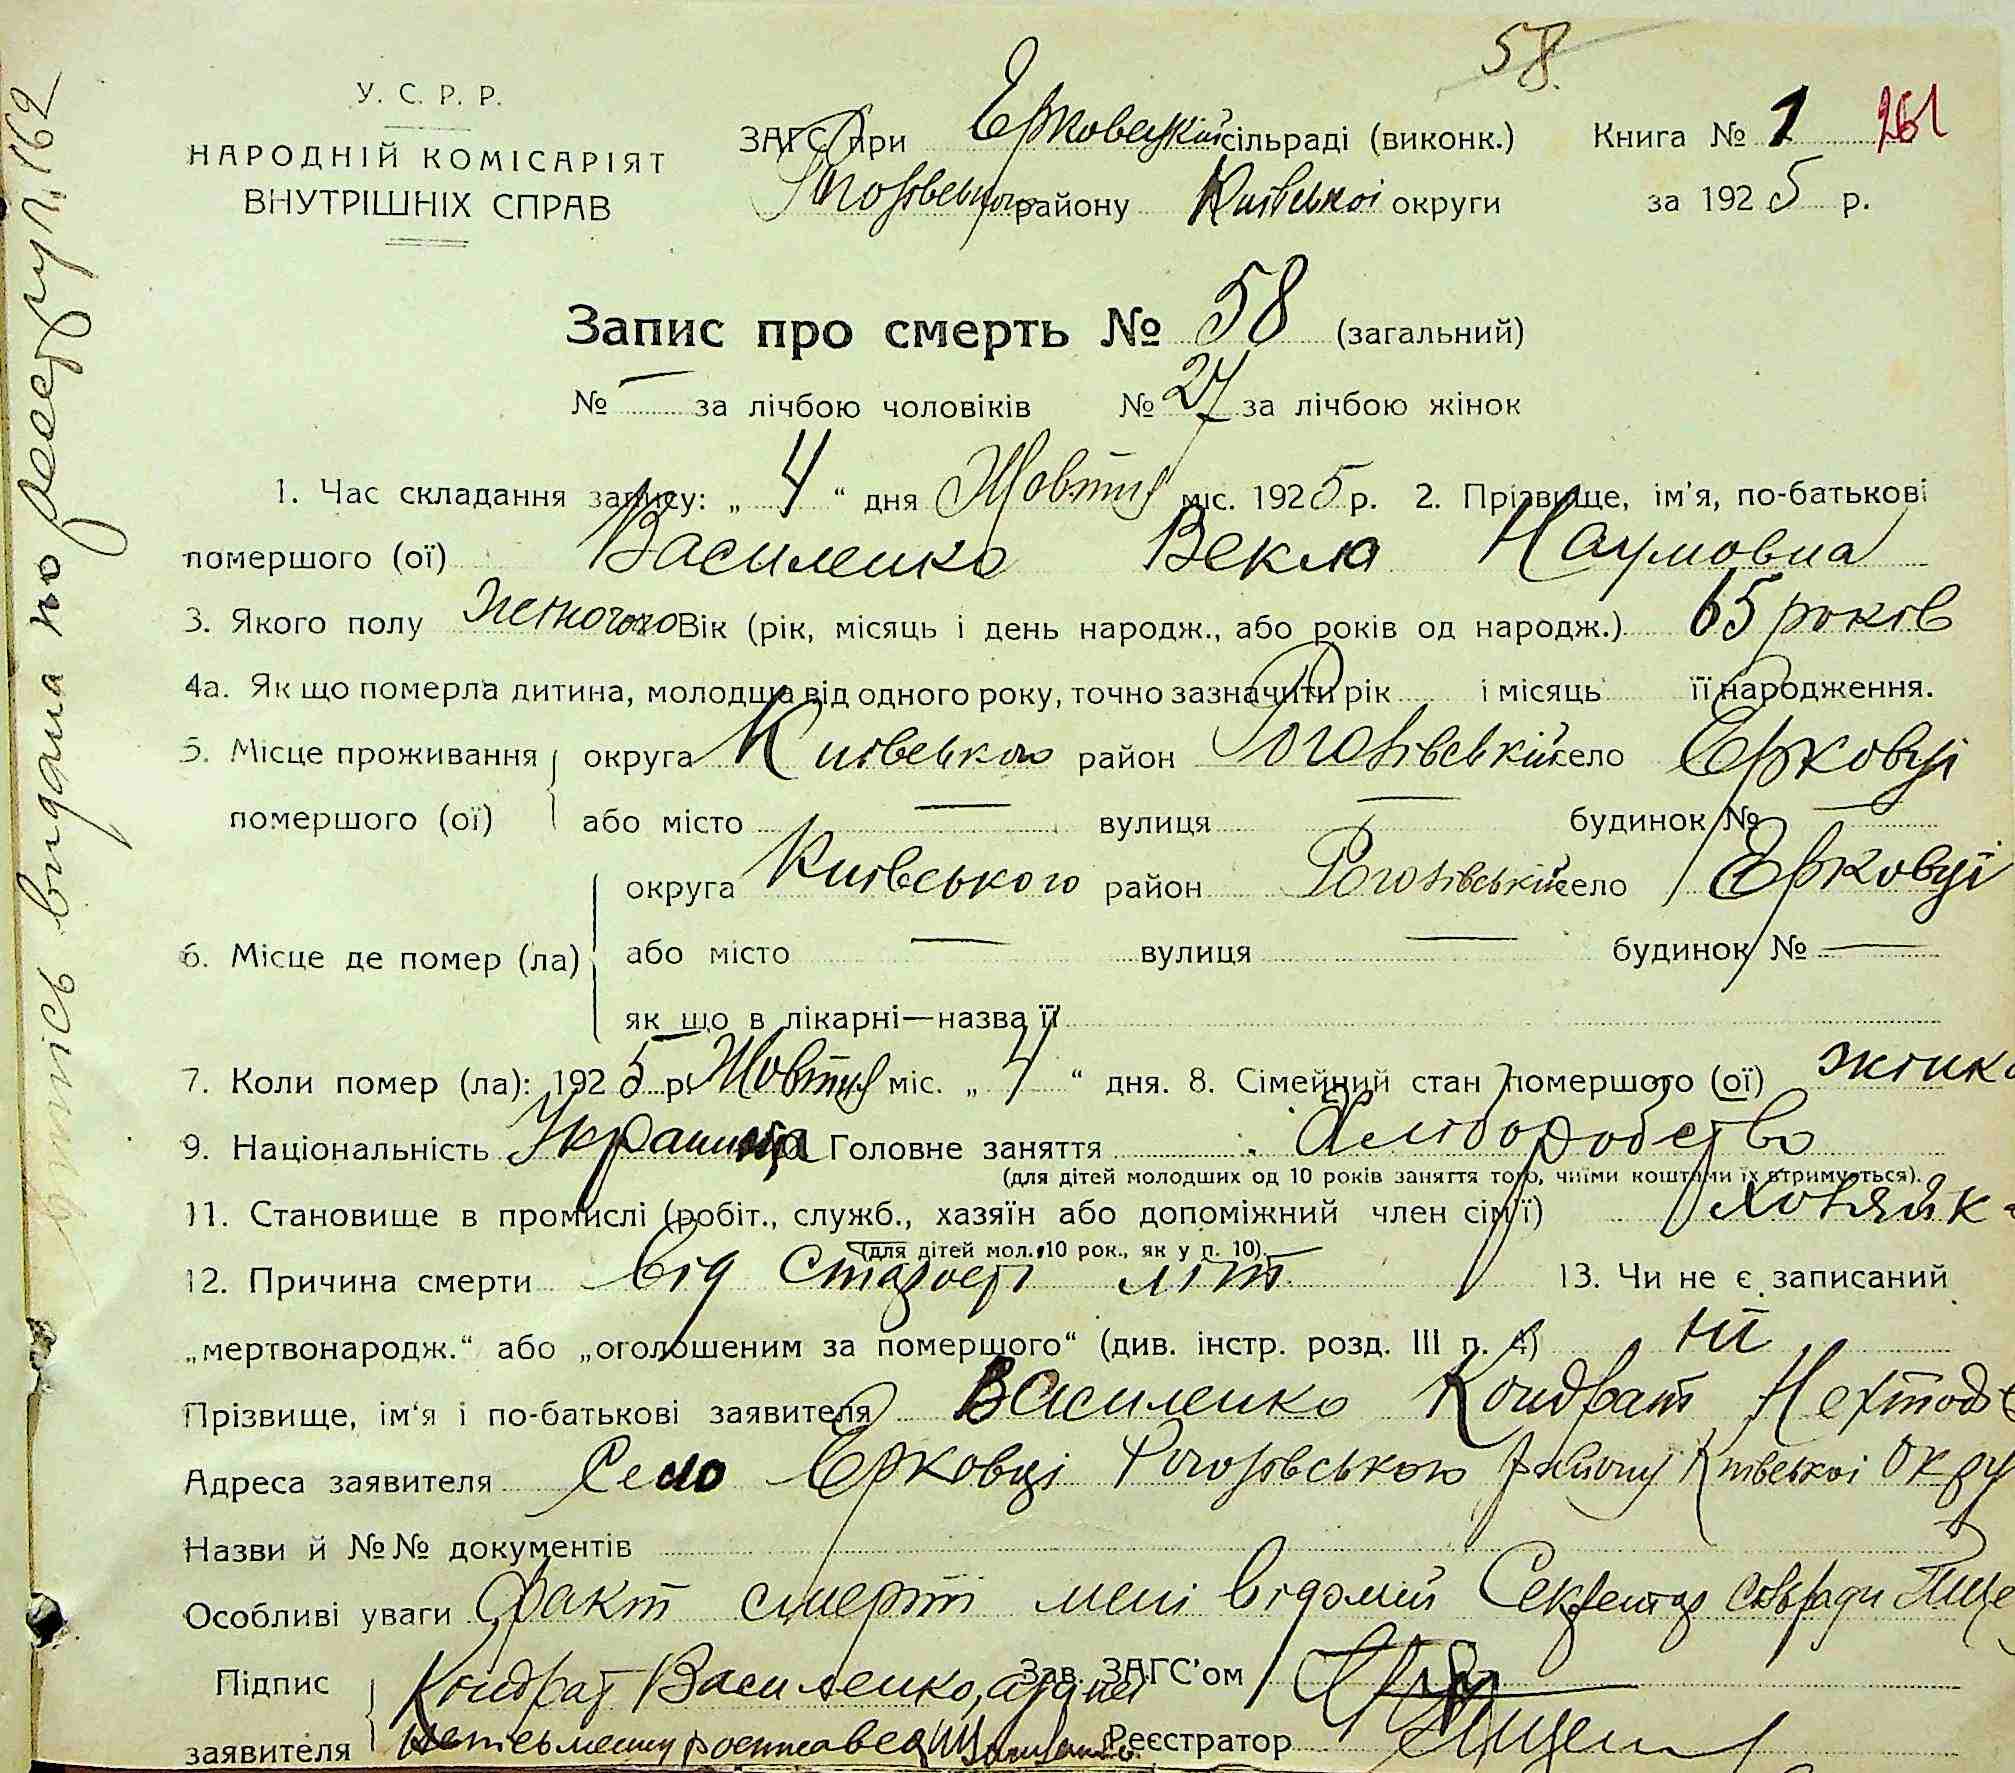 58.
У. С. Р. Р.
НАРОДНІЙ КОМІСАРІЯТ
ВНУТРІШНІХ СПРАВ
ЗАГС при Ерковецкій сільраді (виконк.) Книга № 1 261
району Київської округи за 1925 р.
Запис про смерть № 58 (загальний)
№ — за лічбою чоловіків № 27 за лічбою жінок
1. Час складання запису: „ 4 “ дня Жовтня міс. 1925 р. 2. Прізвище, ім'я, по-батькові
помершого (ої) Василенко Векла Наумовна
3. Якого полу жіночого Вік (рік, місяць і день народж., або років од народж.) 65 років
4а. Як що померла дитина, молодша від одного року, точно зазначити рік і місяць її народження.
5. Місце проживання округа Київського район Рогозівській село Ерковці
помершого (ої) або місто — вулиця — будинок № —
округа Київського район Рогозівській село Ерковці
6. Місце де помер (ла) або місто — вулиця — будинок № —
як що в лікарні—назва її
7. Коли помер (ла): 1925 р. Жовтня міс. „ 4 “ дня. 8. Сімейний стан помершого (ої) жінка
9. Національність Головне заняття Хліборобство
(для дітей молодших од 10 років заняття того, чиїми коштами їх втримується).
11. Становище в промислі (робіт., служб., хазяїн або допоміжний член сім'ї) хозяйка
(для дітей мол. 10 рок., як у п. 10).
12. Причина смерти від старості літ 13. Чи не є записаний
„мертвонародж.“ або „оголошеним за помершого“ (див. інстр. розд. III п. 4) ні
Прізвище, ім'я і по-батькові заявителя Василенко Кондрат
Адреса заявителя Село Ерковці Рогозовського району Київської Окру
Назви й №№ документів
Особливі уваги Факт смерті мені відомий Секретар сільради
Підпис Кондрат Василенко, Зав. ЗАГС'ом
заявителя Реєстратор
витісь видана по реестру № 162